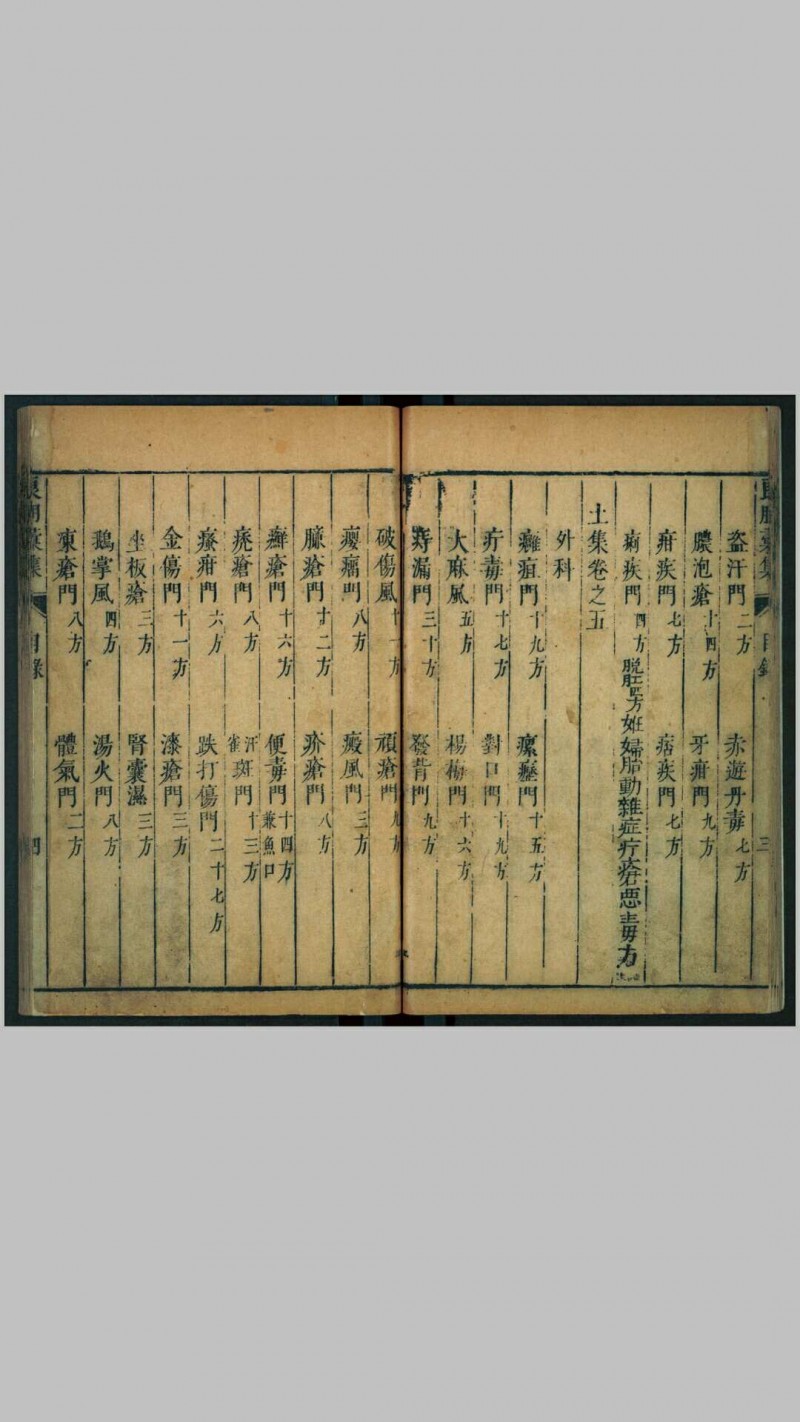 盗汗門二方　赤遊丹毒七方
膿泡瘡十四方　牙疳門九方
疳疾門七方　痞疾門七方
痢疾門四方　脱肛四方　妊婦胎動雜症疔瘡惡毒方
土集卷之五
外科
癰疽門十九方　瘰癧門十五方
疔毒門十七方　對口門十九方
大麻風五方　楊梅門十六方
痔漏門三十方　發背門九方
破傷風十一方　頑瘡門九方
癭瘤門八方　癜風門三方
臁瘡門十二方　疥瘡門八方
癬瘡門十六方　便毒門十四方兼魚口
㾦瘡門八方　汗斑門十三方雀
瘊疳門六方　跌打傷門二十七方
金傷門十一方　漆瘡門三方
坐板瘡三方　腎囊濕三方
鵝掌風四方　湯火門八方
凍瘡門八方　體氣門二方
良朋彙集　目錄　四